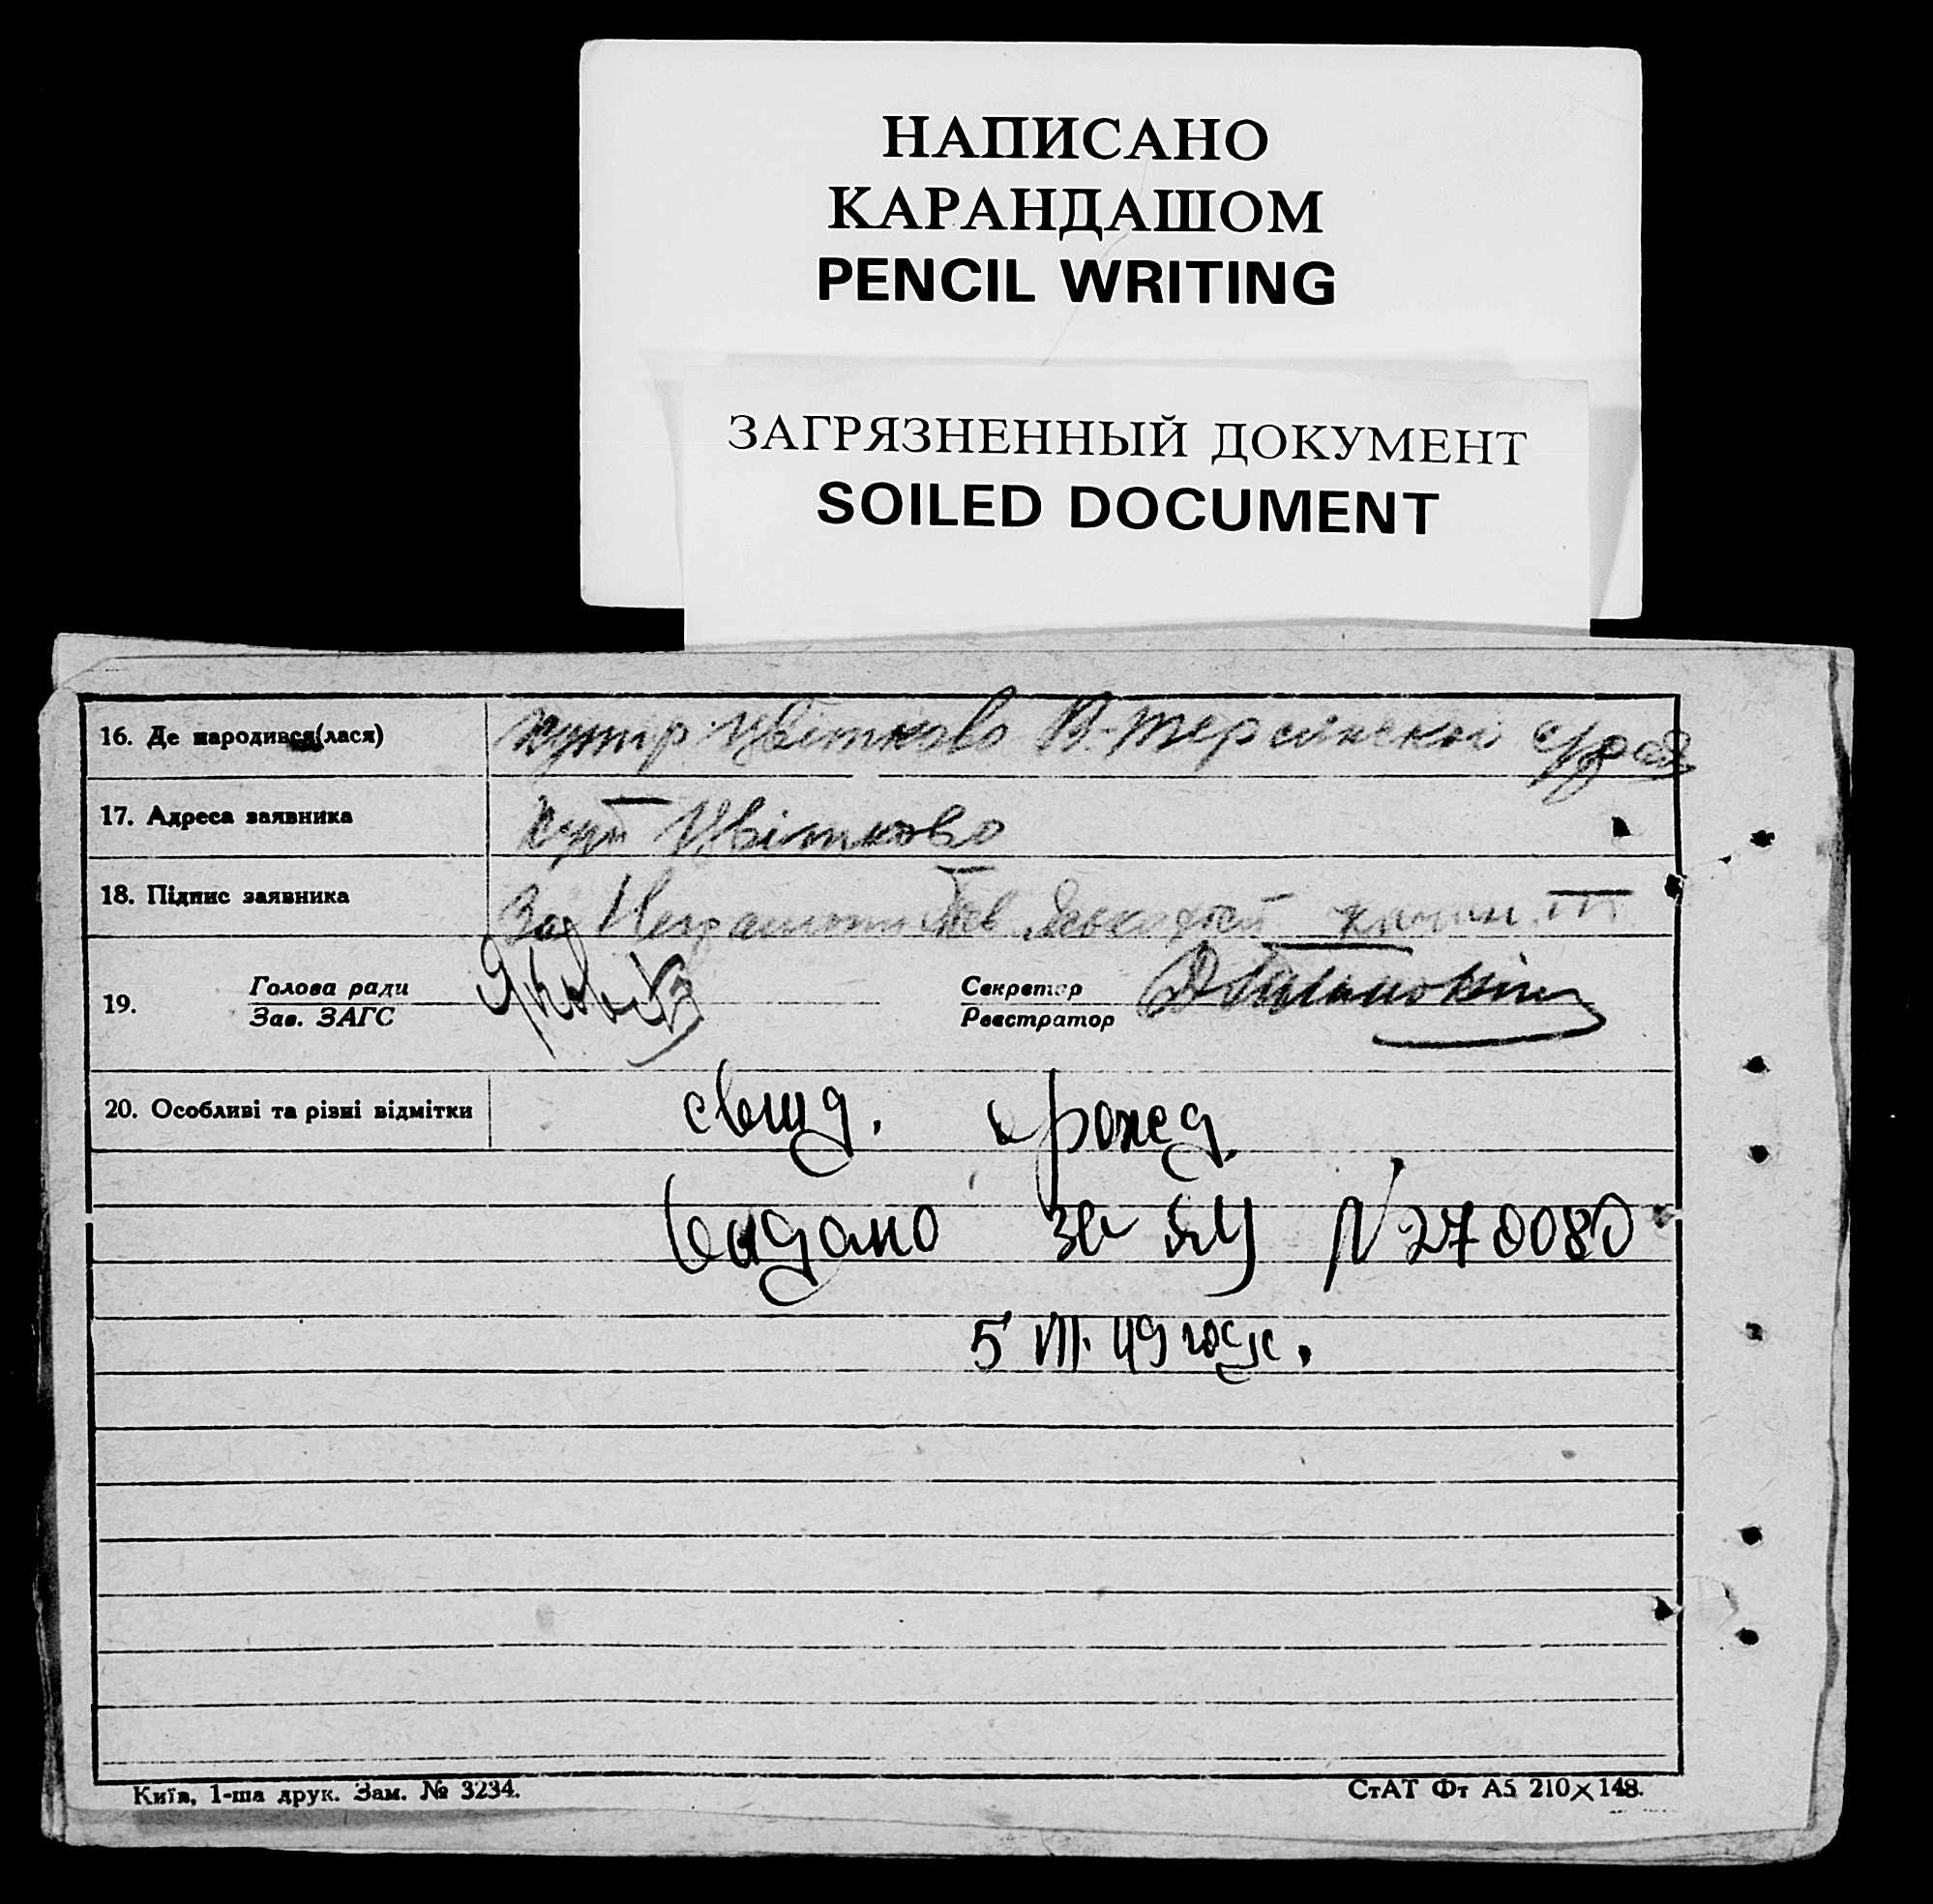 НАПИСАНО
КАРАНДАШОМ
PENCIL WRITING
ЗАГРЯЗНЕННЫЙ ДОКУМЕНТ
SOILED DOCUMENT
16. Де народився(лася) хутір Цвіткова В-Терсянской с/рада
17. Адреса заявника хут Цвіткова
18. Підпис заявника За
19. Голова ради Секретар
Зав. ЗАГС Реєстратор
20. Особливі та різні відмітки свид. о рожд.
выдано за ЯУ N 270080
5 VII. 49 года.
Київ, 1-ша друк. Зам. № 3234. СтАТ Фт А5 210×148.